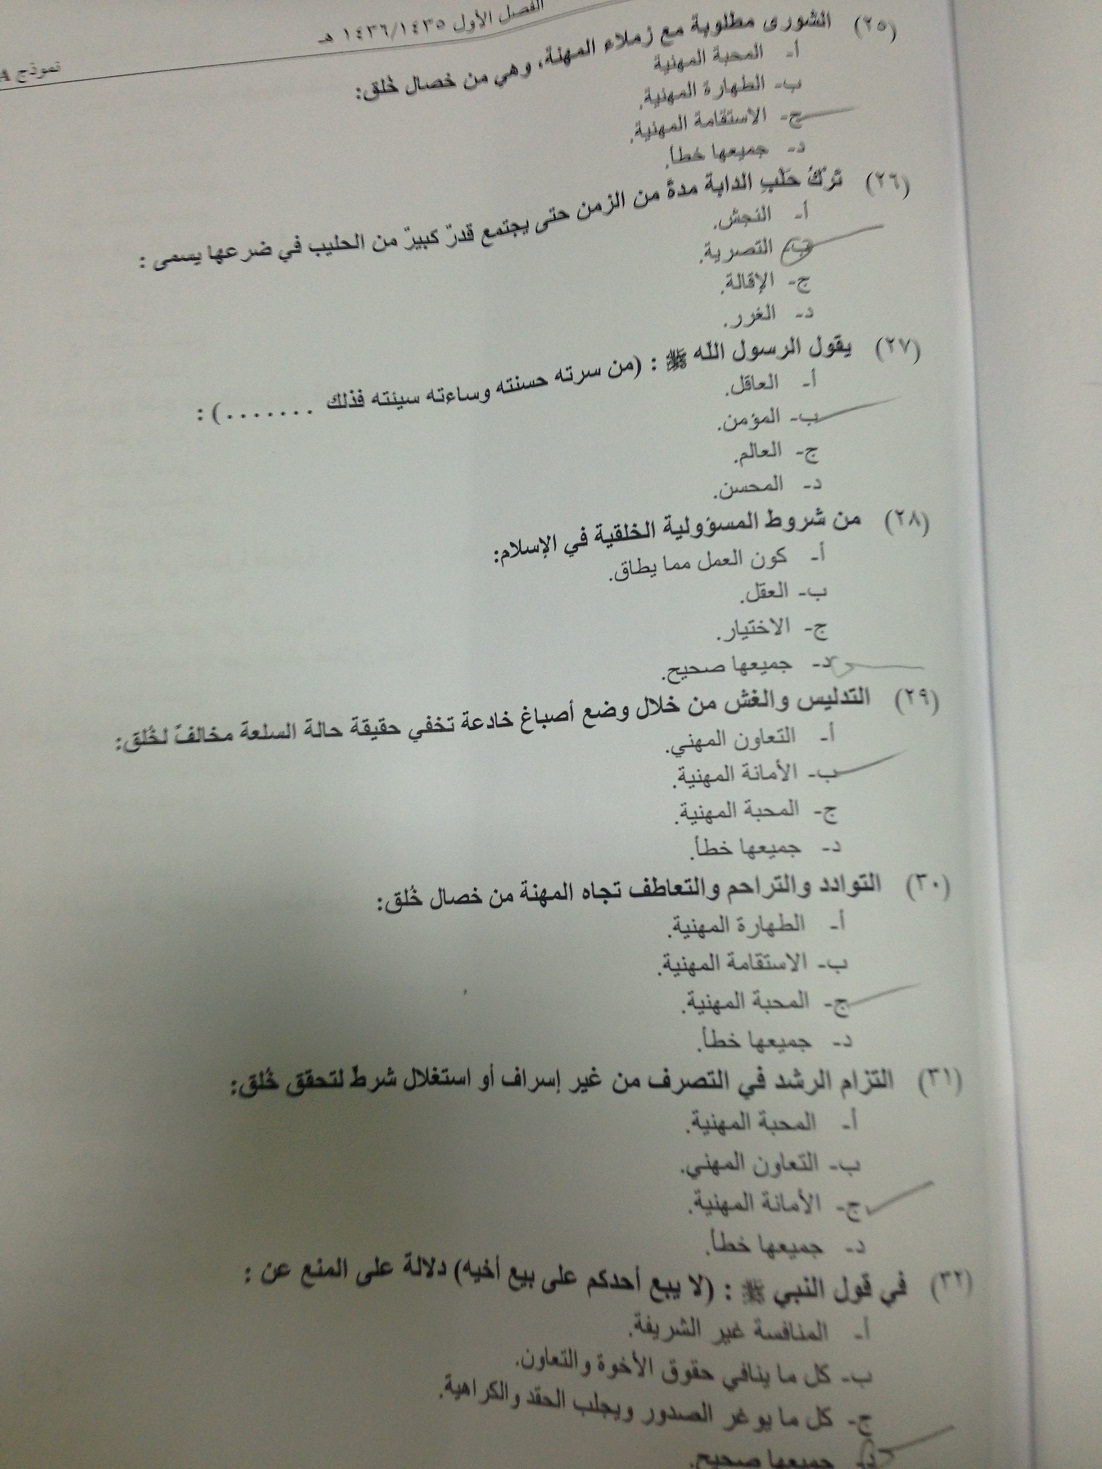 الفصل الأول ١٤٣٥/١٤٣٦ هـ
نموذج A
(٢٥) الشورى مطلوبة مع زملاء المهنة، وهي من خصال خُلق:
أ- المحبة المهنية
ب- الطهارة المهنية.
ج- الاستقامة المهنية.
د- جميعها خطأ.
(٢٦) تَرْكُ حَلْبِ الدابة مدةً من الزمن حتى يجتمع قدرٌ كبيرٌ من الحليب في ضرعها يسمى :
أ- النجش.
ب- التصرية.
ج- الإقالة.
د- الغرر.
(٢٧) يقول الرسول الله ﷺ : (من سرته حسنته وساءته سيئته فذلك .......) :
أ- العاقل.
ب- المؤمن.
ج- العالم.
د- المحسن.
(٢٨) من شروط المسؤولية الخلقية في الإسلام:
أ- كون العمل مما يطاق.
ب- العقل.
ج- الاختيار.
د- جميعها صحيح.
(٢٩) التدليس والغش من خلال وضع أصباغ خادعة تخفي حقيقة حالة السلعة مخالفٌ لخُلق:
أ- التعاون المهني.
ب- الأمانة المهنية.
ج- المحبة المهنية.
د- جميعها خطأ.
(٣٠) التوادد والتراحم والتعاطف تجاه المهنة من خصال خُلق:
أ- الطهارة المهنية.
ب- الاستقامة المهنية.
ج- المحبة المهنية.
د- جميعها خطأ.
(٣١) التزام الرشد في التصرف من غير إسراف أو استغلال شرطٌ لتحقق خُلق:
أ- المحبة المهنية.
ب- التعاون المهني.
ج- الأمانة المهنية.
د- جميعها خطأ.
(٣٢) في قول النبي ﷺ : (لا يبع أحدكم على بيع أخيه) دلالة على المنع عن :
أ- المنافسة غير الشريفة.
ب- كل ما ينافي حقوق الأخوة والتعاون.
ج- كل ما يوغر الصدور ويجلب الحقد والكراهية.
د- جميعها صحيح.